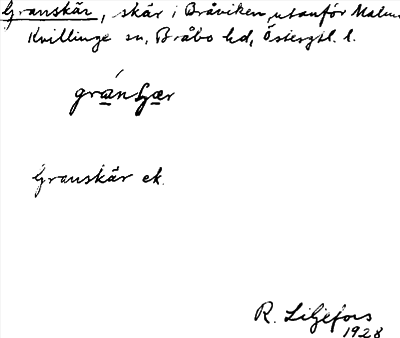 Granskär, skär i Bråviken, utanför Malm
Kvillinge sn, Bråbo hd, Östergtl. l.
Granskär ek.
R. Liljefors
1928